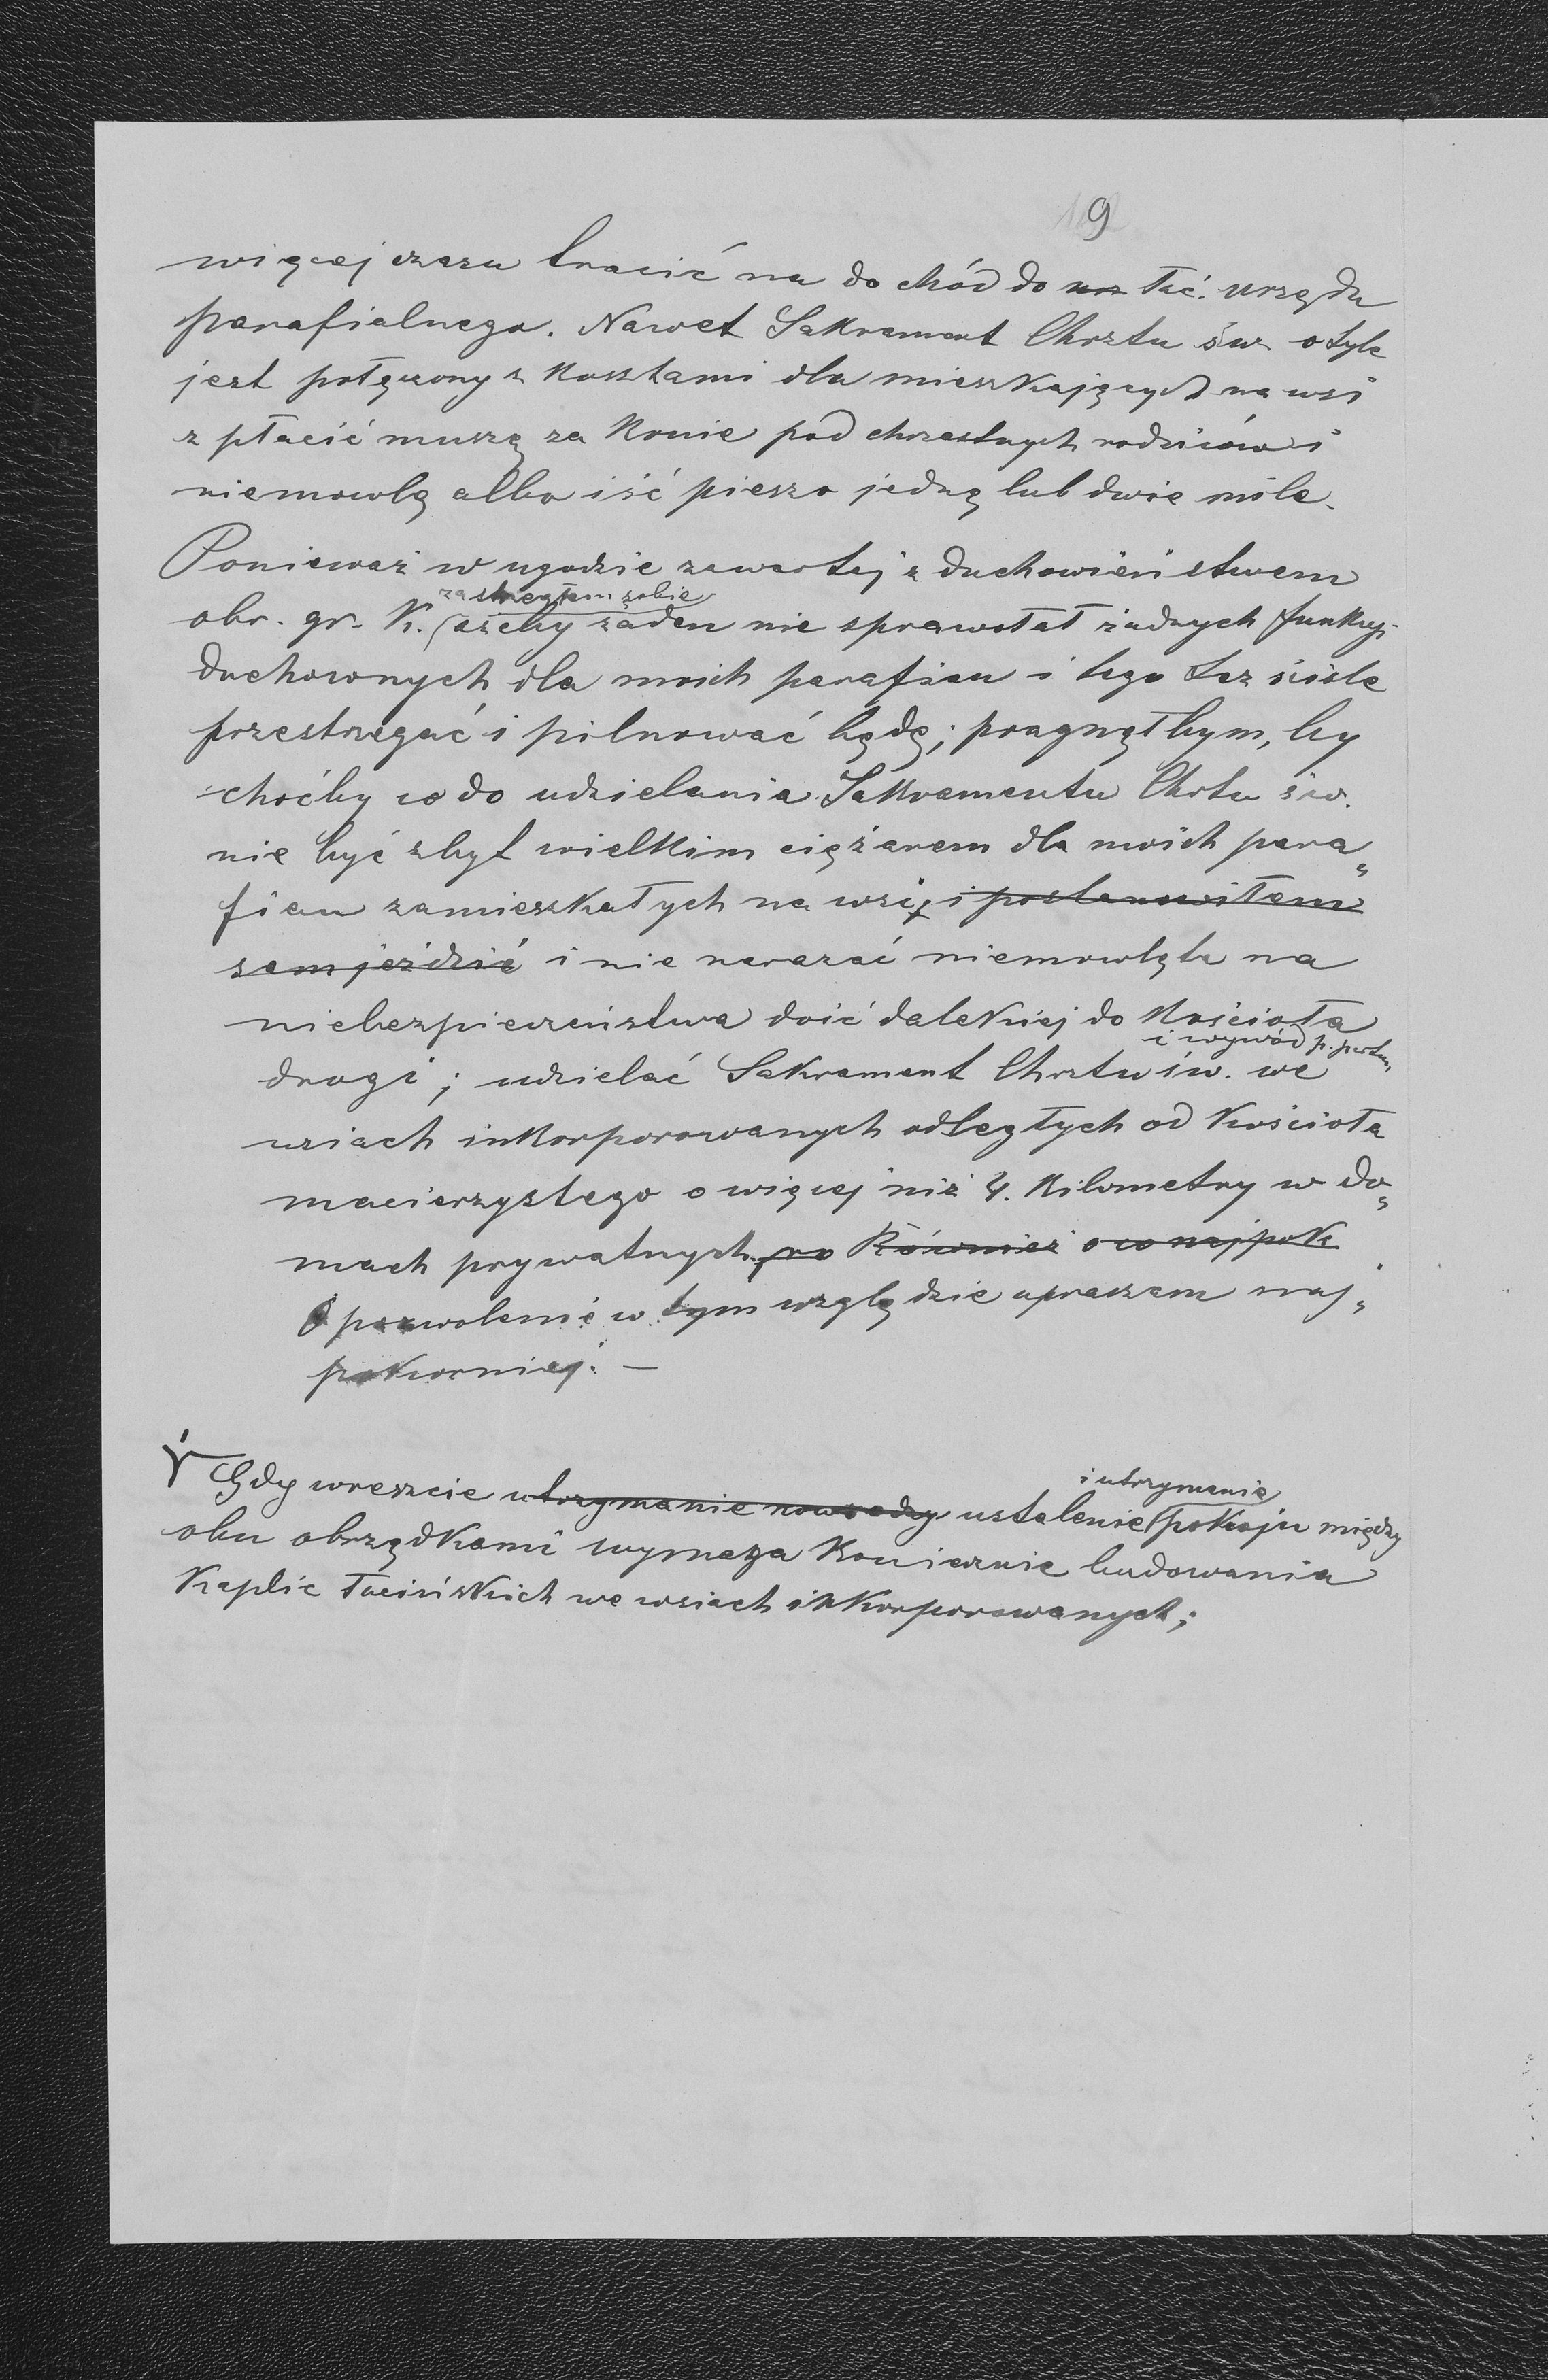 9
więcej czasu tracić na dochód do urz łać. urzędu
parafialnego. Nawet Sakrament Chrztu św. o tyle
jest połączony z kosztami dla mieszkających na wsi
z płacić muszą za konie pod chrzestnych rodziców i
niemowlę albo iść pieszo jedną lub dwie mile.
Ponieważ w ugodzie zawartej z duchowieństwem
zastrzegłem sobie
obr. gr. K. ażeby żaden nie sprawował żadnych funkcyj
duchownych dla moich parafian i tego też ściśle
przestrzegać i pilnować będę; pragnąłbym, by
choćby co do udzielania Sakramentu Chrtu św.
nie być zbyt wielkim ciężarem dla moich para„
fian zamieszkałych na wsi, i postanowiłem
sam jeździć i nie narazać niemowlęta na
niebezpieczeństwa dość dalekiej do Kościoła
i wywód p. partum
drogi; udzielać Sakrament Chrztu św. we
wsiach inkorporowanych odległych od Kościoła
macierzystego o więcej niż 4. Kilometry w do„
mach prywatnych. Również o co najpok
O pozwolenie w tym względzie upraszam naj„
pokorniej. —
i utrzymanie
Gdy wreszcie utrzymanie ustalenie pokoju między
obu obrządkami wymaga koniecznie budowania
Kaplic łacińskich we wsiach inkorporowanych;